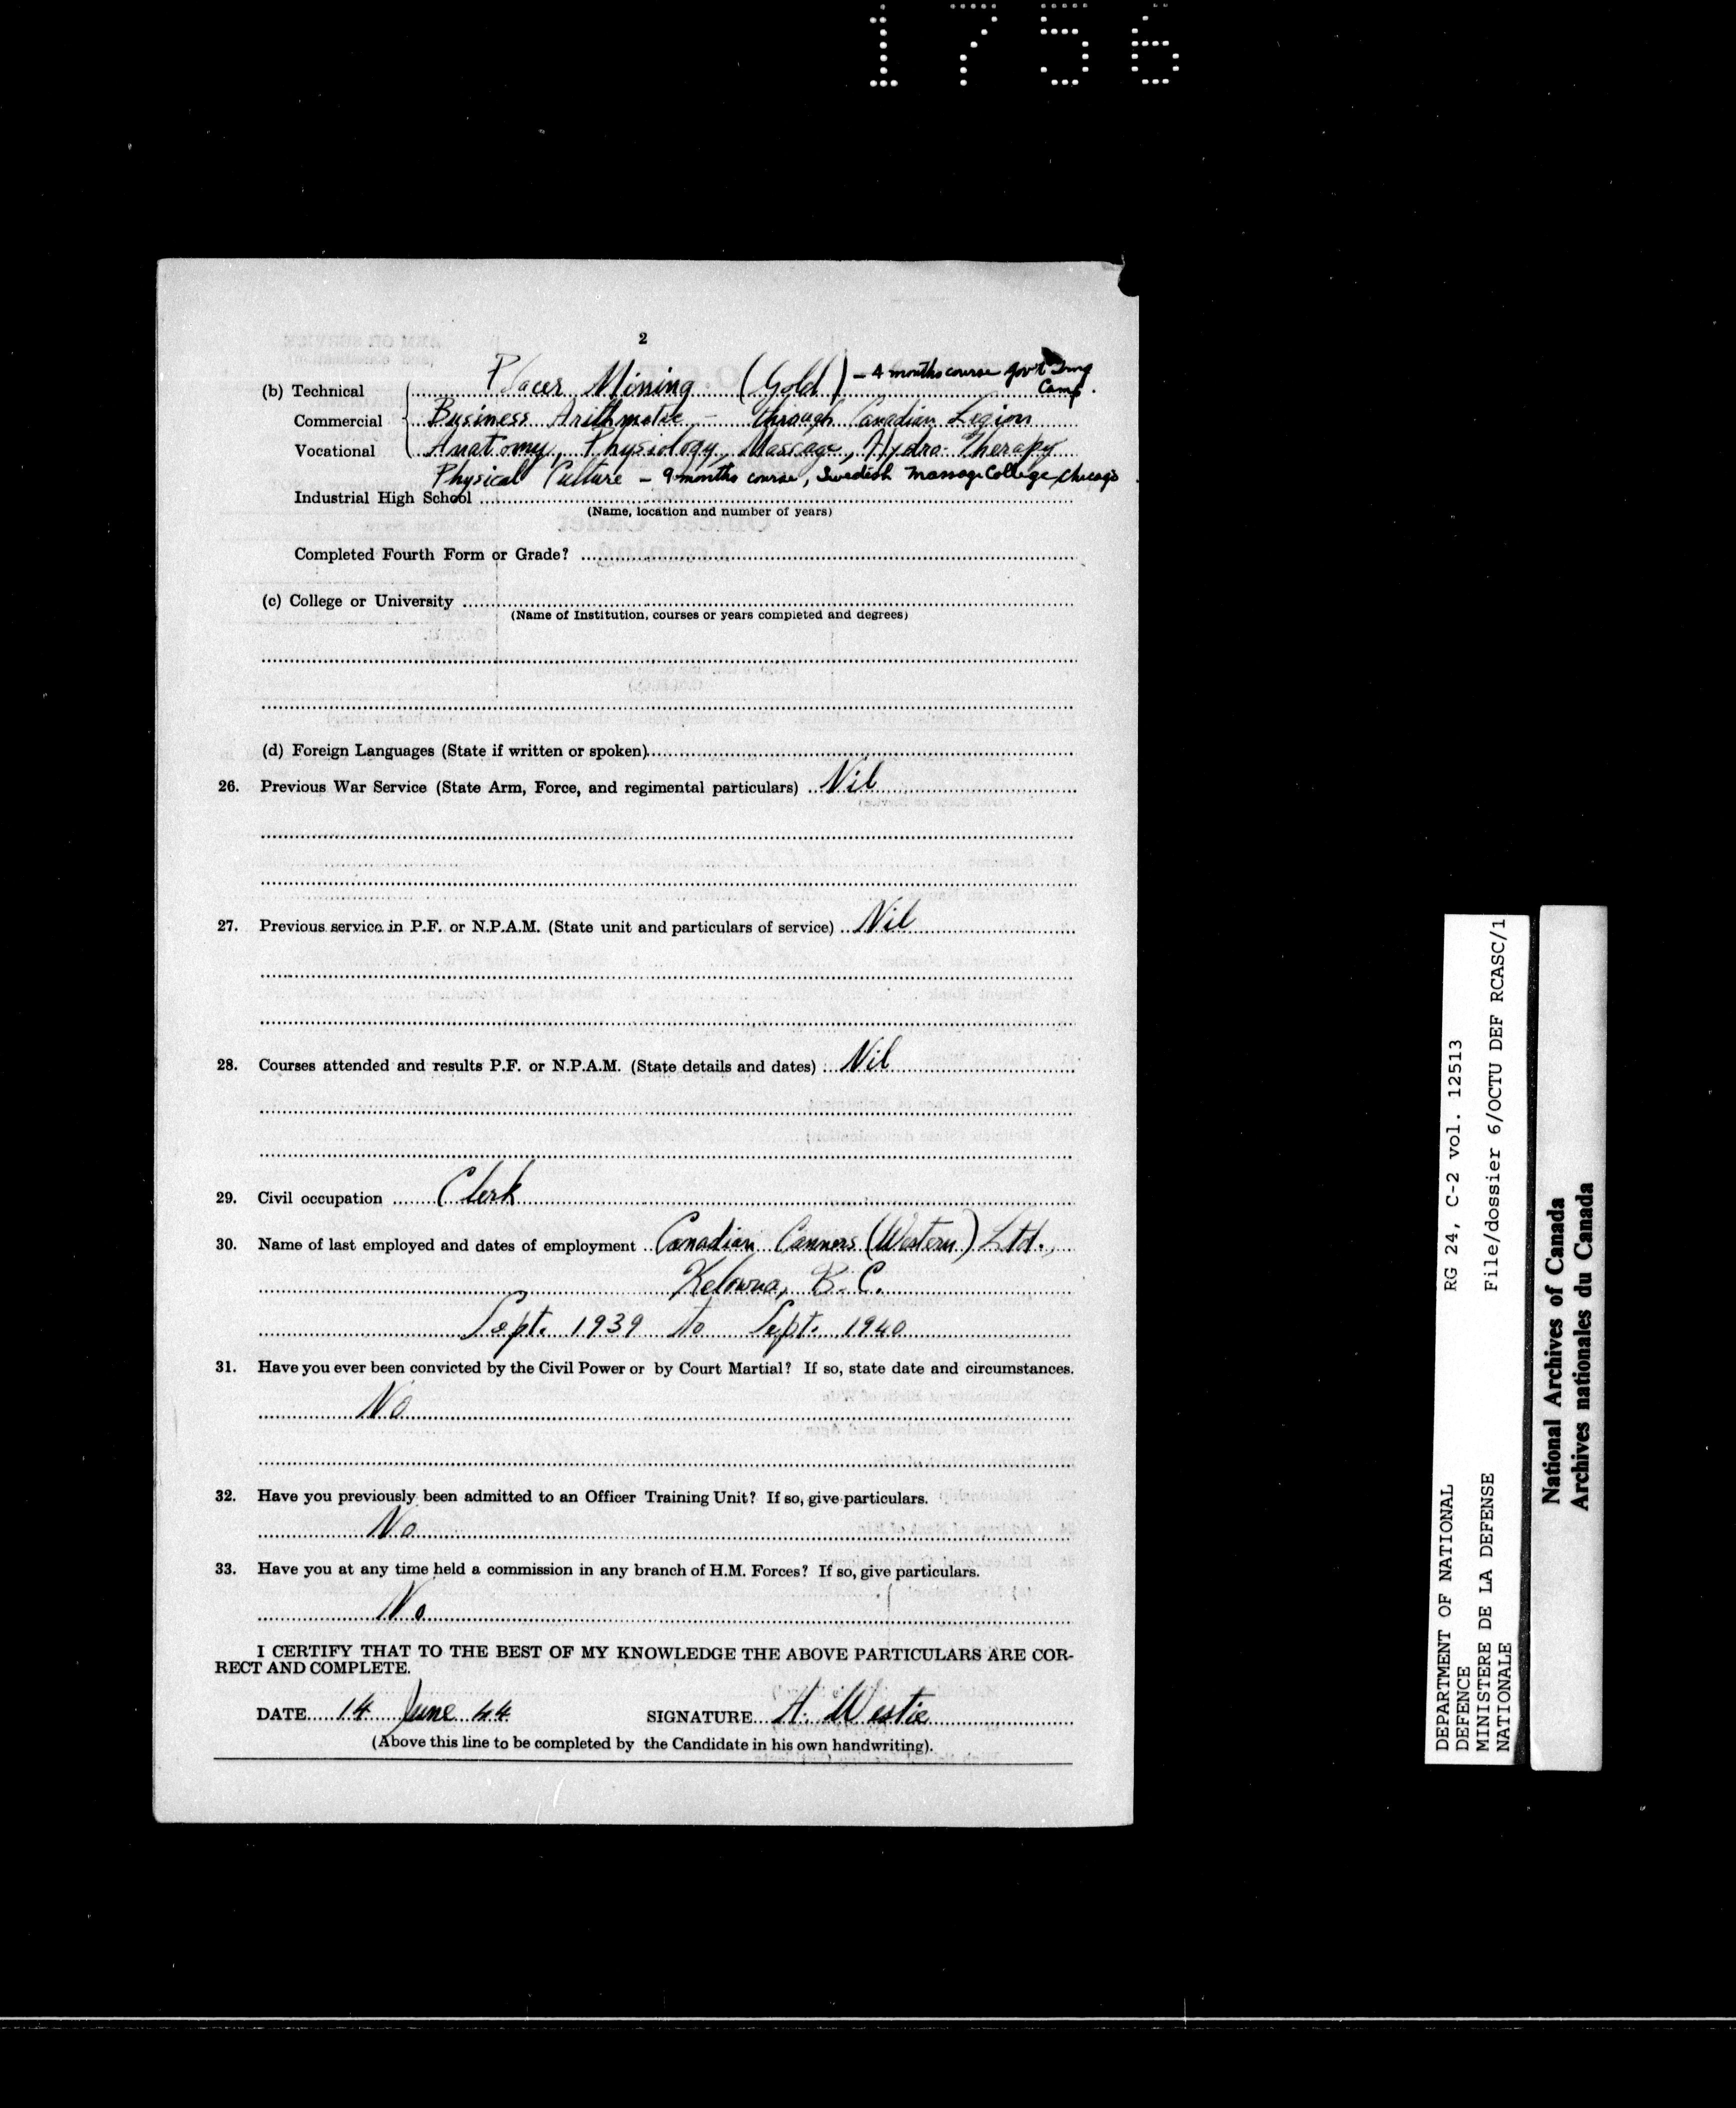 1756
2
(b) Technical Placer Mining (Gold) - 4 months course Gov't Trng
Camp.
Commercial Business Arithmatic - through Canadian Legion
Vocational Anatomy, Physiology, Massage, Hydro-Therapy
Physical Culture - 9 months course, Swedish Massage College, Chicago
Industrial High School
(Name, location and number of years)
Completed Fourth Form or Grade?
(c) College or University
(Name of Institution, courses or years completed and degrees)
(d) Foreign Languages (State if written or spoken)
26. Previous War Service (State Arm, Force, and regimental particulars) Nil
27. Previous service in P.F. or N.P.A.M. (State unit and particulars of service) Nil
28. Courses attended and results P.F. or N.P.A.M. (State details and dates) Nil
29. Civil occupation Clerk
30. Name of last employed and dates of employment Canadian Canners (Western) Ltd.,
Kelowna, B.C.
Sept. 1939 to Sept. 1940
31. Have you ever been convicted by the Civil Power or by Court Martial? If so, state date and circumstances.
No
32. Have you previously been admitted to an Officer Training Unit? If so, give particulars.
No
33. Have you at any time held a commission in any branch of H.M. Forces? If so, give particulars.
No
I CERTIFY THAT TO THE BEST OF MY KNOWLEDGE THE ABOVE PARTICULARS ARE COR-
RECT AND COMPLETE.
DATE 14 June 44 SIGNATURE A. Westie
(Above this line to be completed by the Candidate in his own handwriting).
DEPARTMENT OF NATIONAL RG 24, C-2 vol. 12513
DEFENCE
MINISTERE DE LA DEFENSE File/dossier 6/OCTU DEF RCASC/1
NATIONALE
National Archives of Canada
Archives nationales du Canada